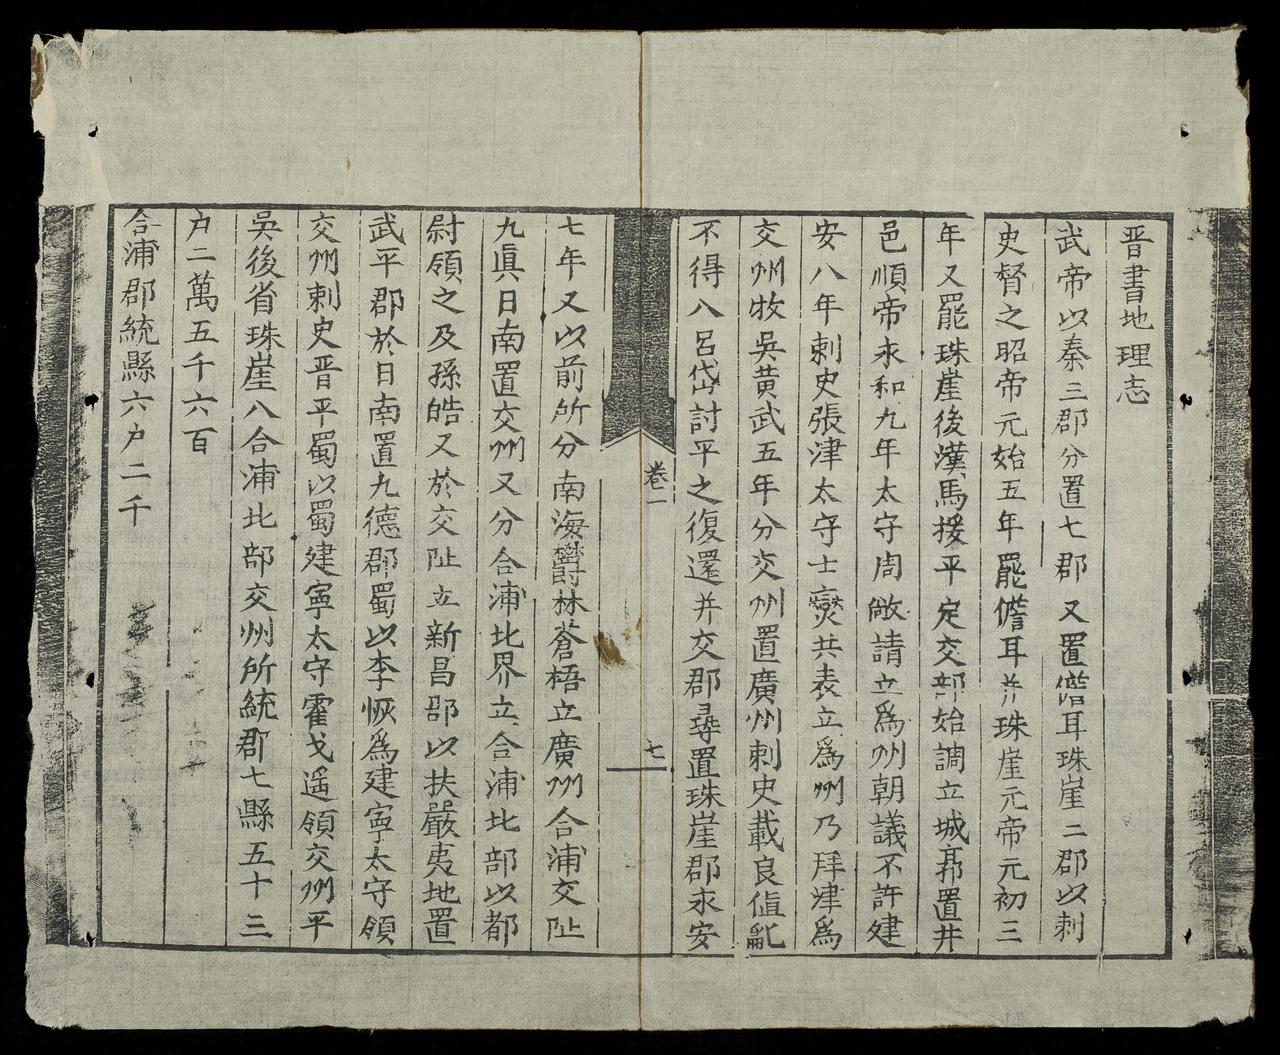 晋書地理志
武帝以秦三郡分置七郡又置儋耳珠崖二郡以刺
史督之昭帝元始五年罷儋耳并珠崖元帝元初三
年又罷珠崖後漢馬援平定交部始調立城郭置井
邑順帝永和九年太守周敞請立爲州朝議不許建
安八年刺史張津太守士燮共表立爲州乃拜津爲
交州牧吳黄武五年分交州置廣州刺史載良値亂
不得八呂岱討平之復還并交郡尋置珠崖郡永安
卷二
七
七年又以前所分南海欝林蒼梧立廣州合浦交阯
九眞日南置交州又分合浦北界立合浦北部以都
尉領之及孫皓又於交阯立新昌郡以扶嚴夷地置
武平郡於日南置九德郡蜀以李恢爲建寧太守領
交州刺史晋平蜀以蜀建寧太守霍戈遥領交州平
吳後省珠崖八合浦北部交州所統郡七縣五十三
户二萬五千六百
合浦郡統縣六户二千